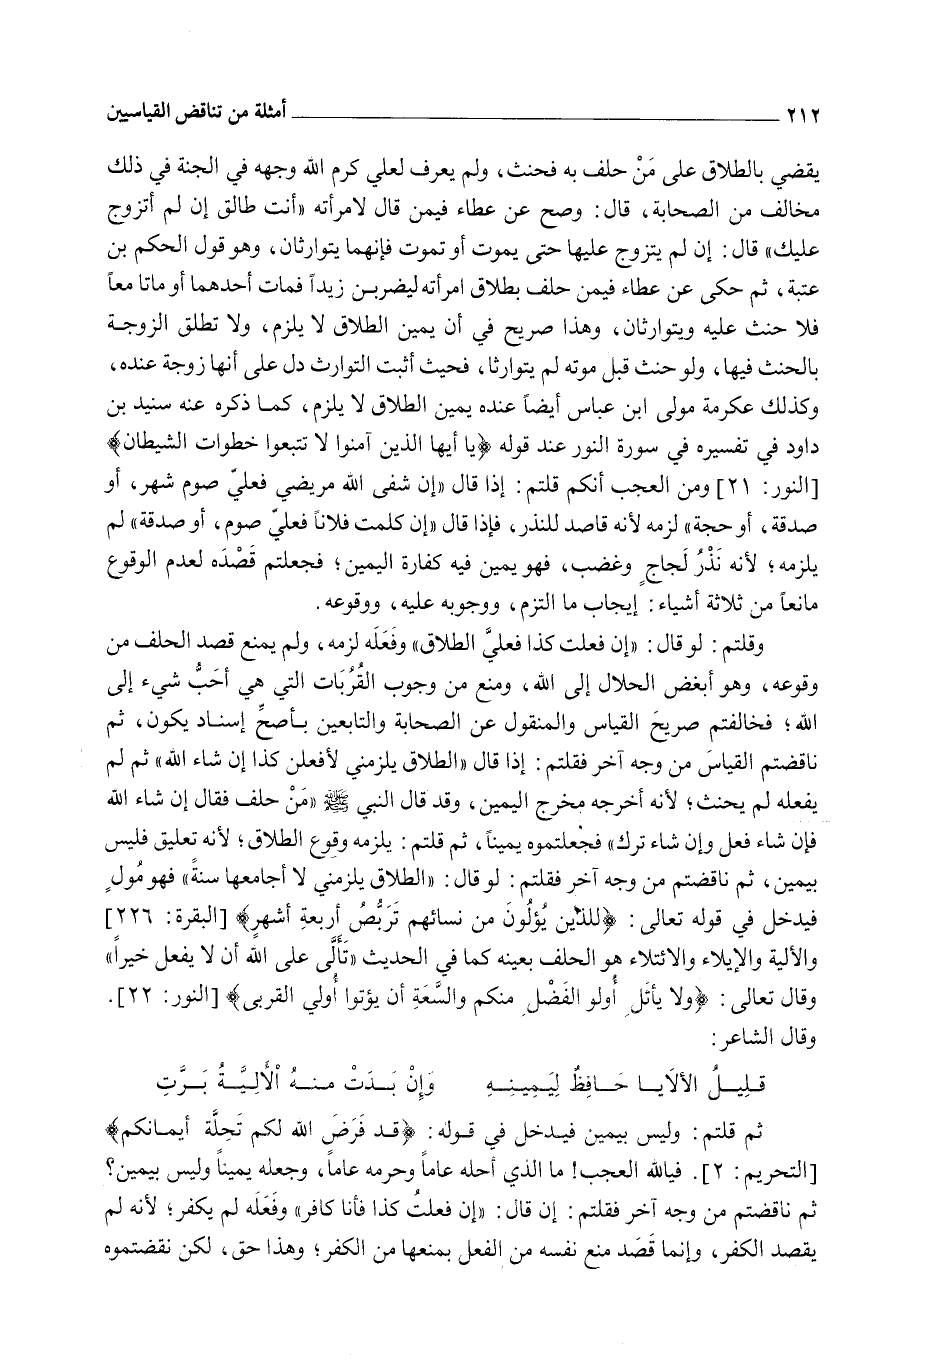 ٢١٢ أمثلة من تناقض القياسيين
يقضي بالطلاق على مَنْ حلف به فحنث، ولم يعرف لعلي كرم الله وجهه في الجنة في ذلك
مخالف من الصحابة، قال: وصح عن عطاء فيمن قال لامرأته «أنت طالق إن لم أتزوج
عليك» قال: إن لم يتزوج عليها حتى يموت أو تموت فإنهما يتوارثان، وهو قول الحكم بن
عتبة، ثم حكى عن عطاء فيمن حلف بطلاق امرأته ليضربن زيداً فمات أحدهما أو ماتا معاً
فلا حنث عليه ويتوارثان، وهذا صريح في أن يمين الطلاق لا يلزم، ولا تطلق الزوجة
بالحنث فيها، ولو حنث قبل موته لم يتوارثا، فحيث أثبت التوارث دل على أنها زوجة عنده،
وكذلك عكرمة مولى ابن عباس أيضاً عنده يمين الطلاق لا يلزم، كما ذكره عنه سنيد بن
داود في تفسيره في سورة النور عند قوله ﴿يا أيها الذين آمنوا لا تتبعوا خطوات الشيطان﴾
[النور: ٢١] ومن العجب أنكم قلتم: إذا قال «إن شفى الله مريضي فعليّ صوم شهر، أو
صدقة، أو حجة» لزمه لأنه قاصد للنذر، فإذا قال «إن كلمت فلاناً فعليّ صوم، أو صدقة» لم
يلزمه؛ لأنه نَذْرُ لَجاجٍ وغضب، فهو يمين فيه كفارة اليمين؛ فجعلتم قَصْدَه لعدم الوقوع
مانعاً من ثلاثة أشياء: إيجاب ما التزم، ووجوبه عليه، ووقوعه.
وقلتم: لو قال: «إن فعلت كذا فعليَّ الطلاق» وفَعَلَه لزمه، ولم يمنع قصد الحلف من
وقوعه، وهو أبغض الحلال إلى الله، ومنع من وجوب القُرُبَات التي هي أحَبُّ شيء إلى
الله؛ فخالفتم صريحَ القياس والمنقول عن الصحابة والتابعين بأصحِّ إسناد يكون، ثم
ناقضتم القياسَ من وجه آخر فقلتم: إذا قال «الطلاق يلزمني لأفعلن كذا إن شاء الله» ثم لم
يفعله لم يحنث؛ لأنه أخرجه مخرج اليمين، وقد قال النبي ﷺ «مَنْ حلف فقال إن شاء الله
فإن شاء فعل وإن شاء ترك» فجعلتموه يميناً، ثم قلتم: يلزمه وقوع الطلاق؛ لأنه تعليق فليس
بيمين، ثم ناقضتم من وجه آخر فقلتم: لو قال: «الطلاق يلزمني لا أجامعها سنةً» فهو مُولٍ
فيدخل في قوله تعالى: ﴿للذين يُؤلُونَ من نسائهم تَرَبُّصُ أربعةِ أشهرٍ﴾ [البقرة: ٢٢٦]
والألية والإيلاء والائتلاء هو الحلف بعينه كما في الحديث «تَأَلَّى على الله أن لا يفعل خيراً»
وقال تعالى: ﴿ولا يأتَلِ أُولو الفَضْلِ منكم والسَّعَةِ أن يؤتوا أُولي القربى﴾ [النور: ٢٢].
وقال الشاعر:
قليلُ الألايا حَافِظٌ لِيَمِينِهِ وَإِنْ بَدَتْ منهُ ٱلْأَلِيَّةُ بَرَّتِ
ثم قلتم: وليس بيمين فيدخل في قوله: ﴿قد فَرَضَ الله لكم تَحِلَّة أيمانكم﴾
[التحريم: ٢]. فيالله العجب! ما الذي أحله عاماً وحرمه عاماً، وجعله يميناً وليس بيمين؟
ثم ناقضتم من وجه آخر فقلتم: إن قال: «إن فعلتُ كذا فأنا كافر» وفَعَلَه لم يكفر؛ لأنه لم
يقصد الكفر، وإنما قَصَد منع نفسه من الفعل بمنعها من الكفر؛ وهذا حق، لكن نقضتموه